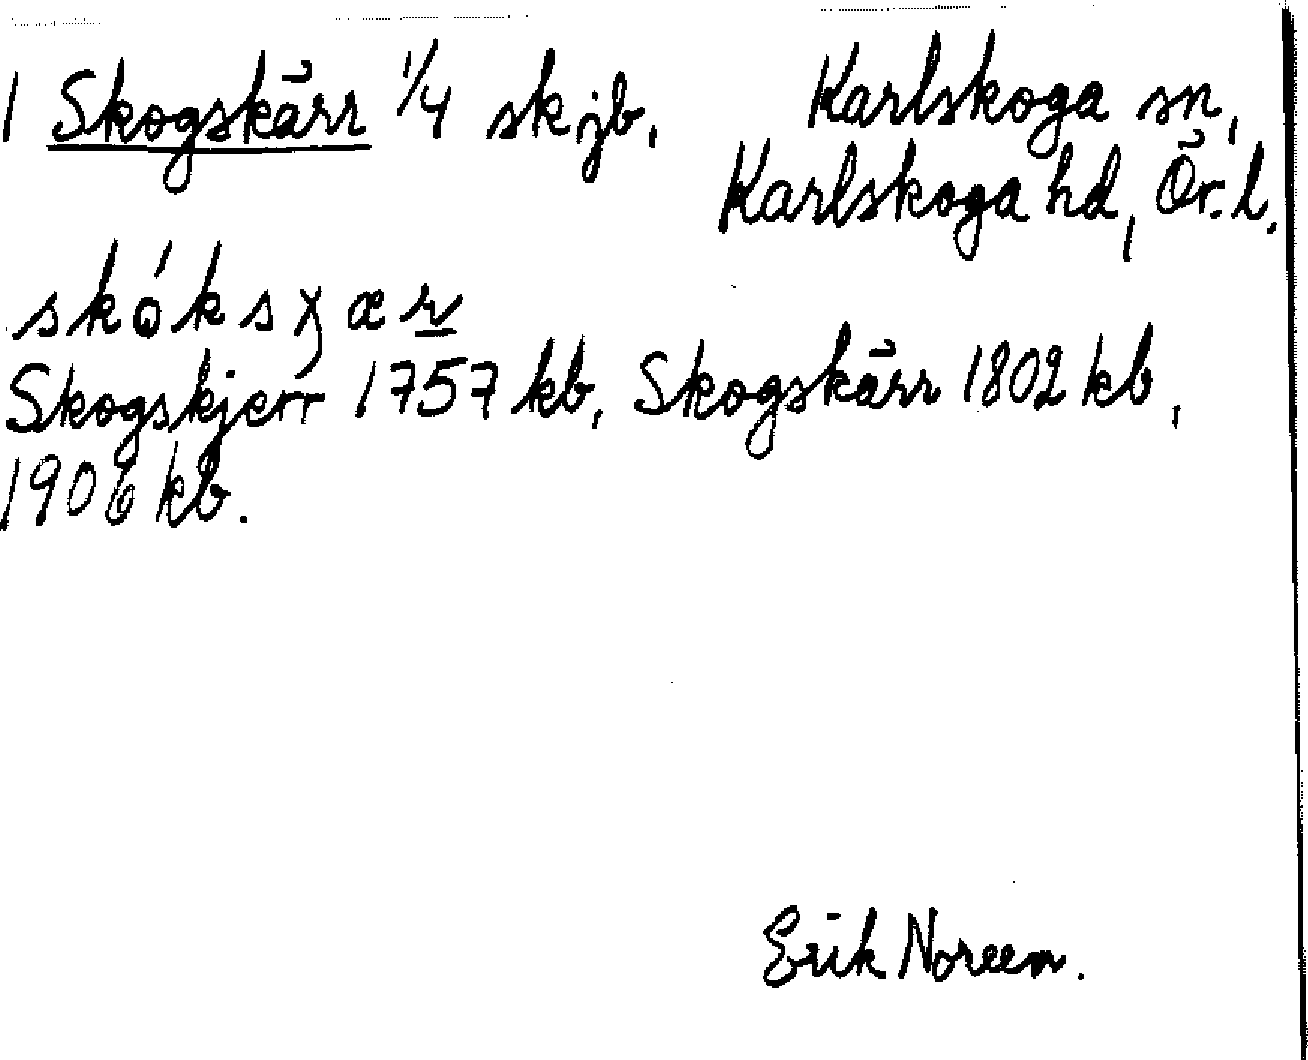 1 Skogskärr 1/4 skjb, Karlskoga sn,
Karlskoga hd, Ör. l.
skóksχær
Skogskjerr 1757 kb, Skogskärr 1802 kb,
1906 kb.
Erik Noreen.